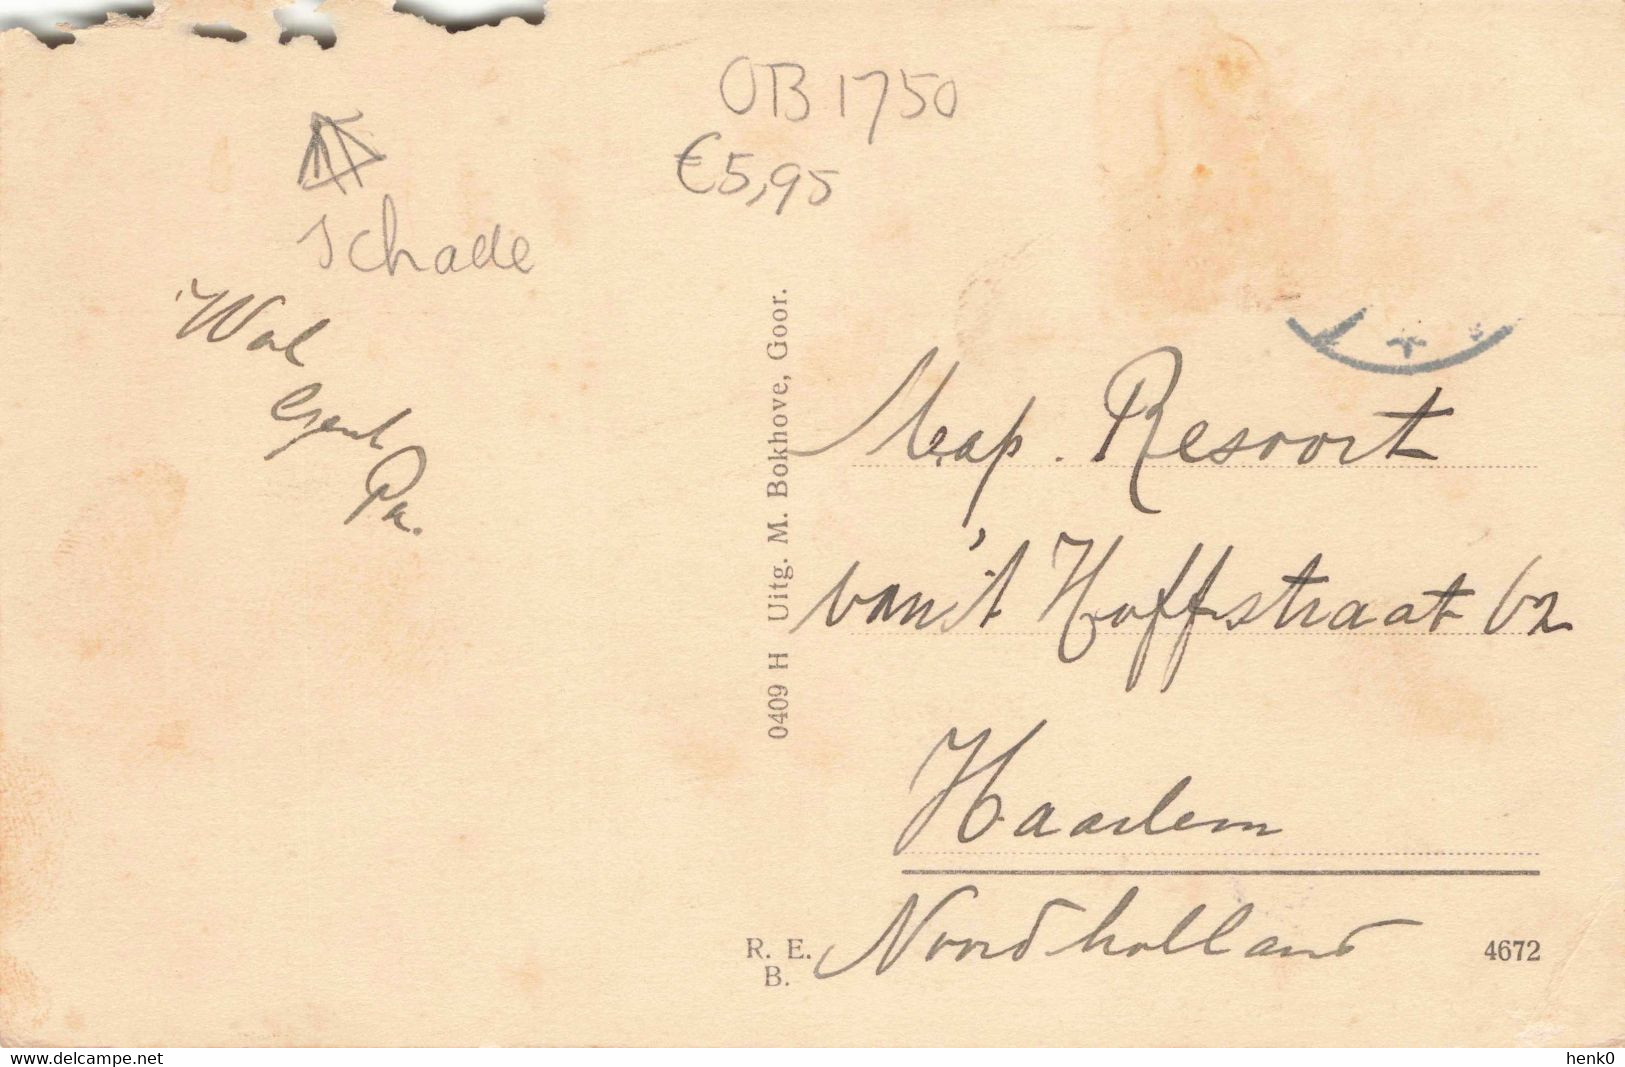 OB 1750
€5,95
Schade
Wal
Gent
Pa.
0409 H Uitg. M. Bokhove, Goor.
Resoort
van 't Hoffstraat 62
Haarlem
Noordholland
R. E.
B.
4672
www.delcampe.net
henk0